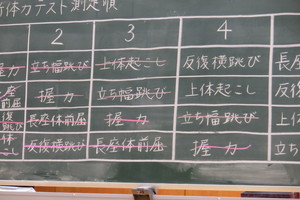 体力テスト測定順
2 3 4
握力 立ち幅跳び 上体起こし 反復横跳び
座 前屈 握力 立ち幅跳び 上体起こし 反
復 跳び 長座体前屈 握力 立ち幅跳び 長座
体 こし 反復横跳び 長座体前屈 握力 立ち